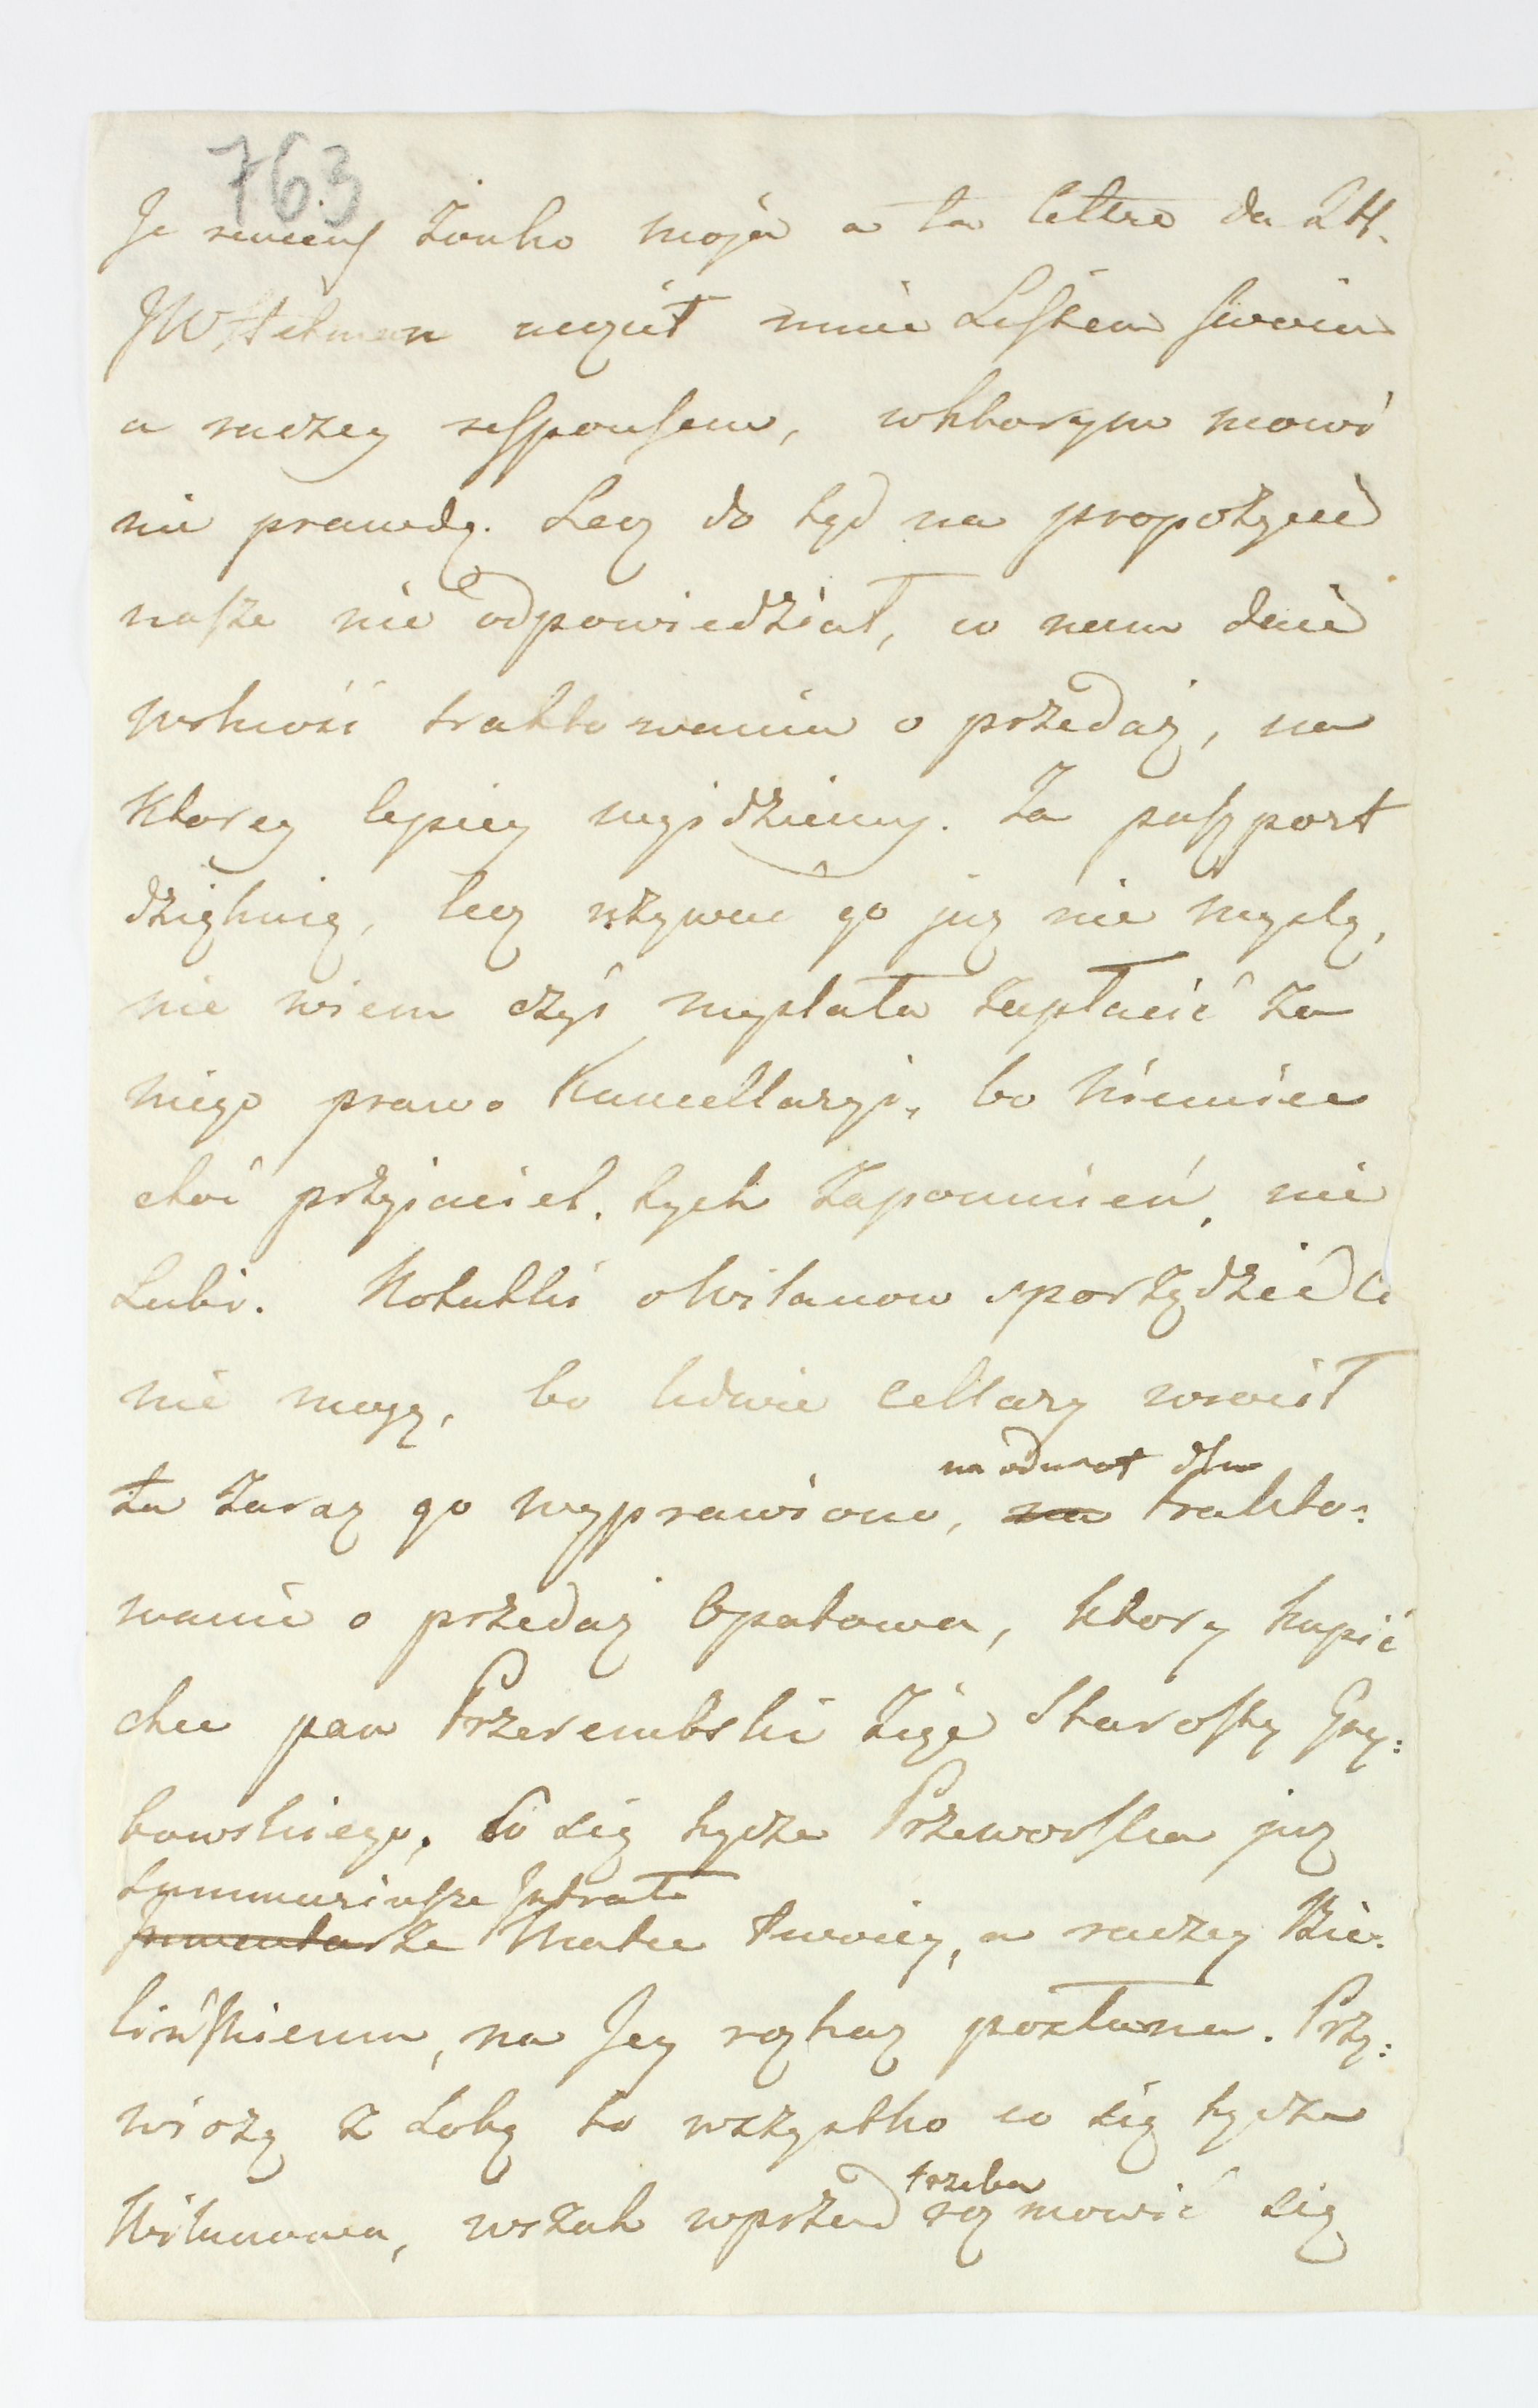 763
Je reviens Żonko moja a ta lettre du 24.
JW. Hetman uczcił mnie Listem swoim
a raczey responsem, wktorym mowi
nie prawdę. Lecz do tąd na propozycie
nasze nie odpowiedział, co nam daie
wolność traktowania o przedaż, na
ktorey lepiey wyjdziemy. Za paszport
dziękuię, lecz używać go już nie myślę,
nie wiem czyś myślała zapłacić za
niego prawo Kancellaryi, bo Niemiec
choć przyiaciel, tych zapomnień, nie
Lubi. Notatki o Wilanow sporządzić Ci
nie mogę, bo ledwie Cellary wrocił
ta zaraz go wyprawiono, na odwrot dla trakto:
wania o przedaż Opatowa, ktory kupić
chce pan Przerembski Zięć Starosty Gry:
bowskiego. Co się tycze Przeworska już
Summariusze Jntrat
Jnwentarze Matce twoiey, a raczey Bie:
lińskiemu, na Jey rozkaz posłane. Przy:
wiozę z Sobą to wszystko co się tycze
Wilanowa, wszak wprzed trzeba roz mowić się